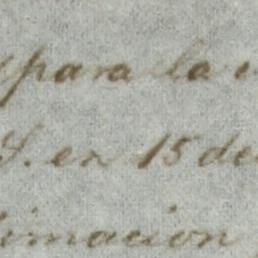 para la
S. en 15 de
imacion